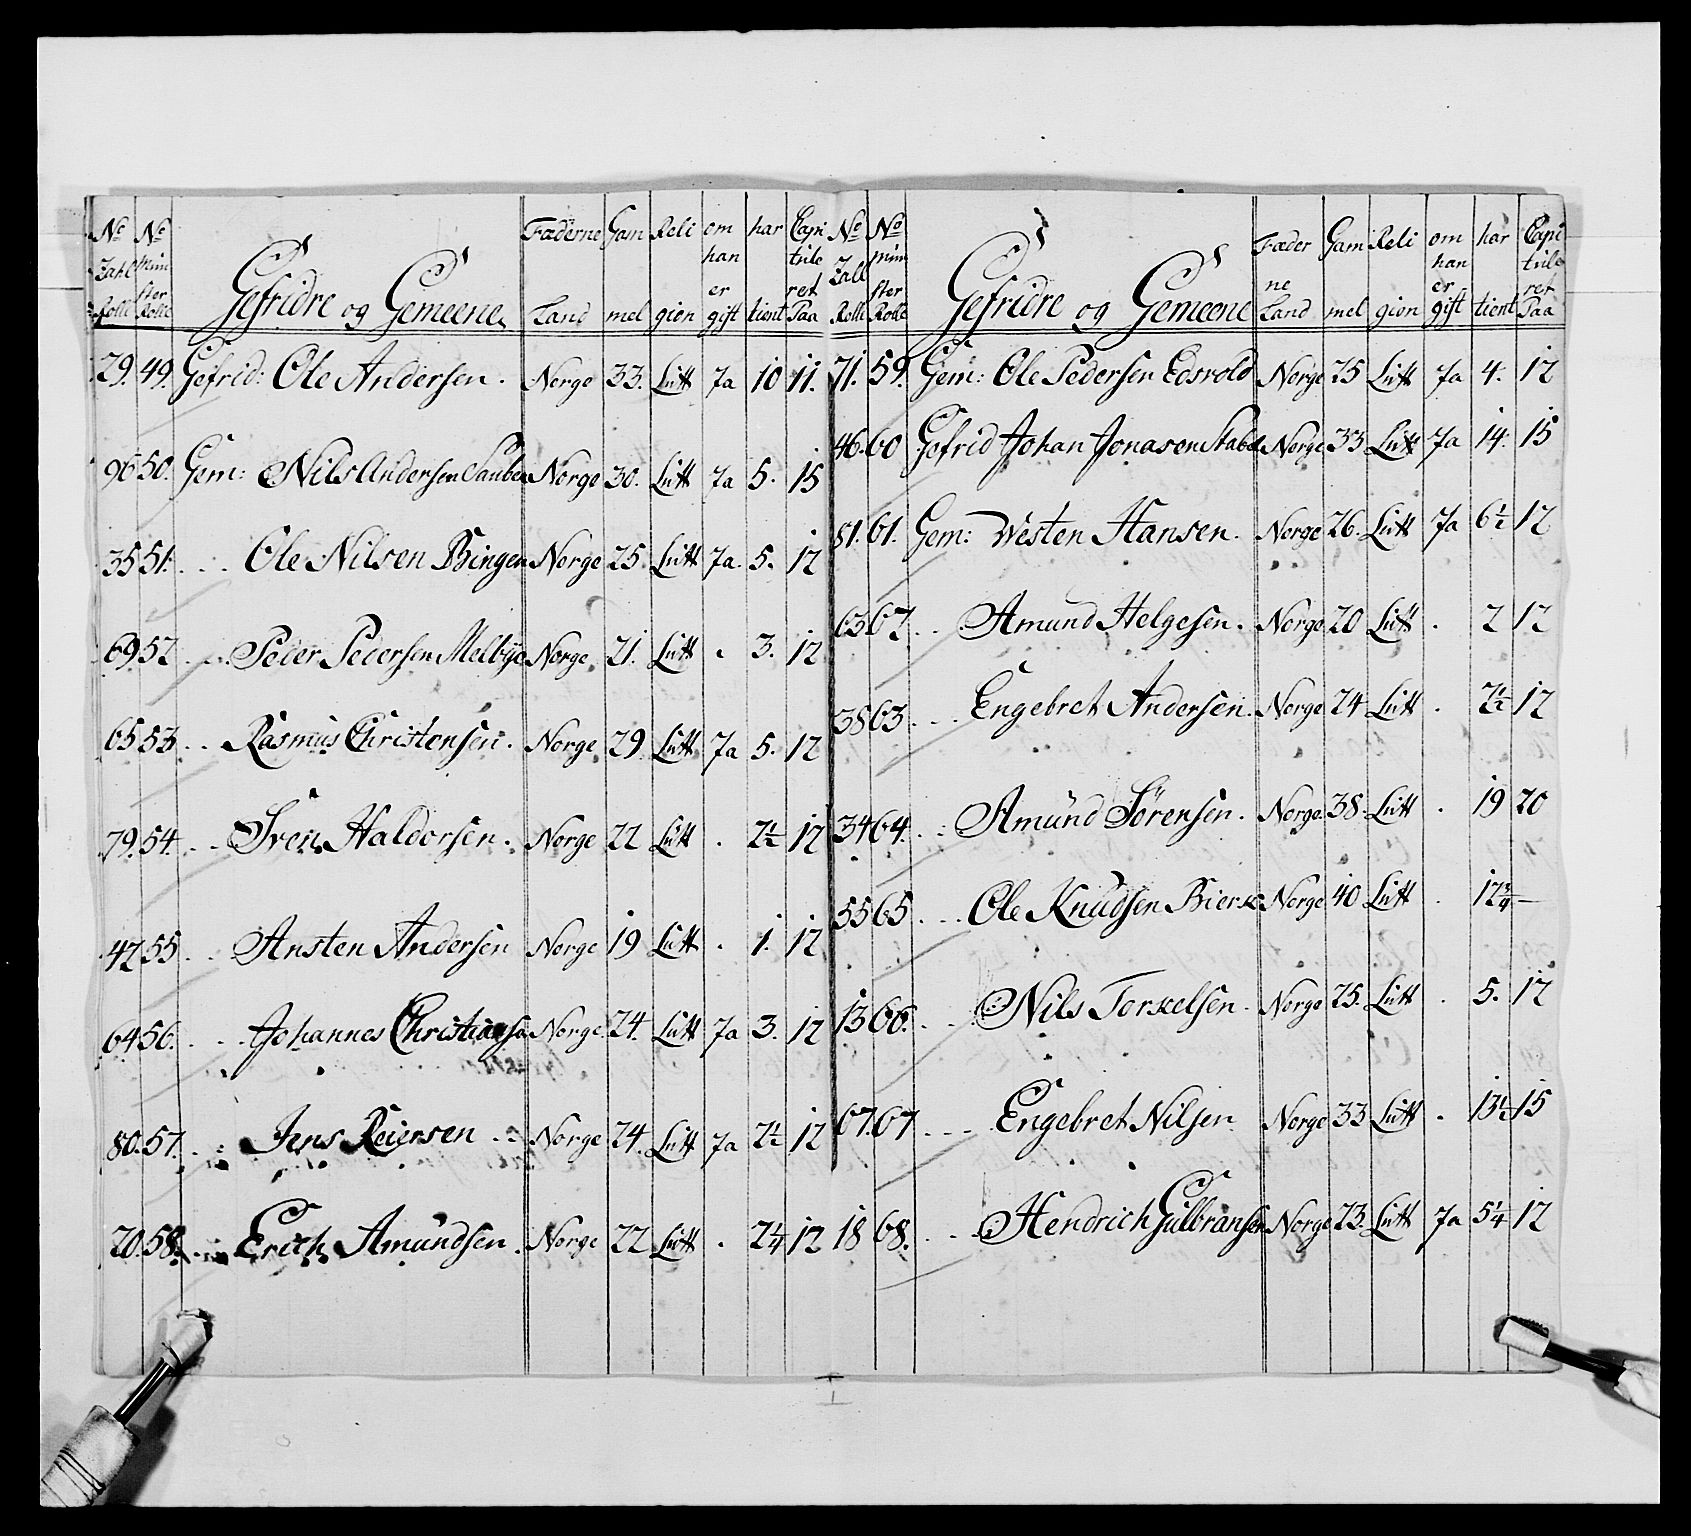 No Zahl Rolle | No Mün ster Rolle | Gefridre og Gemeene | Fæderne Land | Gam mel | Reli gion | om han er gift | har tient | Capi tule ret Paa
29. 49. Gefrid: Ole Andersen. Norge 33. Lutt Ja 10 11.
96 50. Gem: Nils Andersen Norge 30. Lutt Ja 5. 15
35 51. . . . Ole Nilsen Bingen Norge 25. Lutt Ja. 5. 12
69 52 . . . Peder Pedersen Melbÿe Norge 21. Lutt . 3. 12
65 53 . . Rasmus Christensen. Norge 29 Lutt Ja 5. 12
79. 54. . . Sven Haldorsen. Norge 22 Lutt . 2½ 12
47 55 . . Ansten Andersen Norge 19 Lutt . 1. 12
64 56. . . . Johannes Christiansen Norge 24. Lutt Ja 3. 12
80. 57. . . Jens Reiersen .. Norge 24. Lutt Ja 2½ 12
20. 58. . . Erich Amundsen. Norge 22 Lutt . 2¼ 12
No Zall Rolle | No mün ster Rolle | Gefridre og Gemeene | Fæder ne Land | Gam mel | Reli gion | om han er gift | har tient | Capi tule ret Paa
71. 59. Gem: Ole Pedersen Edsvold Norge 25 Lutt Ja 4. 12
46. 60 Gefrid Johan Jonasen Stabek Norge 33 Lutt Ja 14. 15
81. 61. Gem: Westen Hansen. Norge 26. Lutt Ja 6½ 12
63 62 . . Amund Helgesen. Norge 20 Lutt . 2 12
38 63 . . . Engebret Andersen. Norge 24 Lutt . 2½ 12
34 64. . . Amund Sörensen. Norge. 38. Lutt . 19 20
55 65 . . . Ole Knudsen Norge 40 Lutt . 12¾ —
13 66. . . . Nils Torkelsen. Norge 25. Lutt . 5. 12
67. 67 . . . . Engebret Nilsen Norge 33 Lutt . 13½ 15
18 68. . . . Hendrich Gulbransen Norge 23. Lutt Ja 5¼ 12